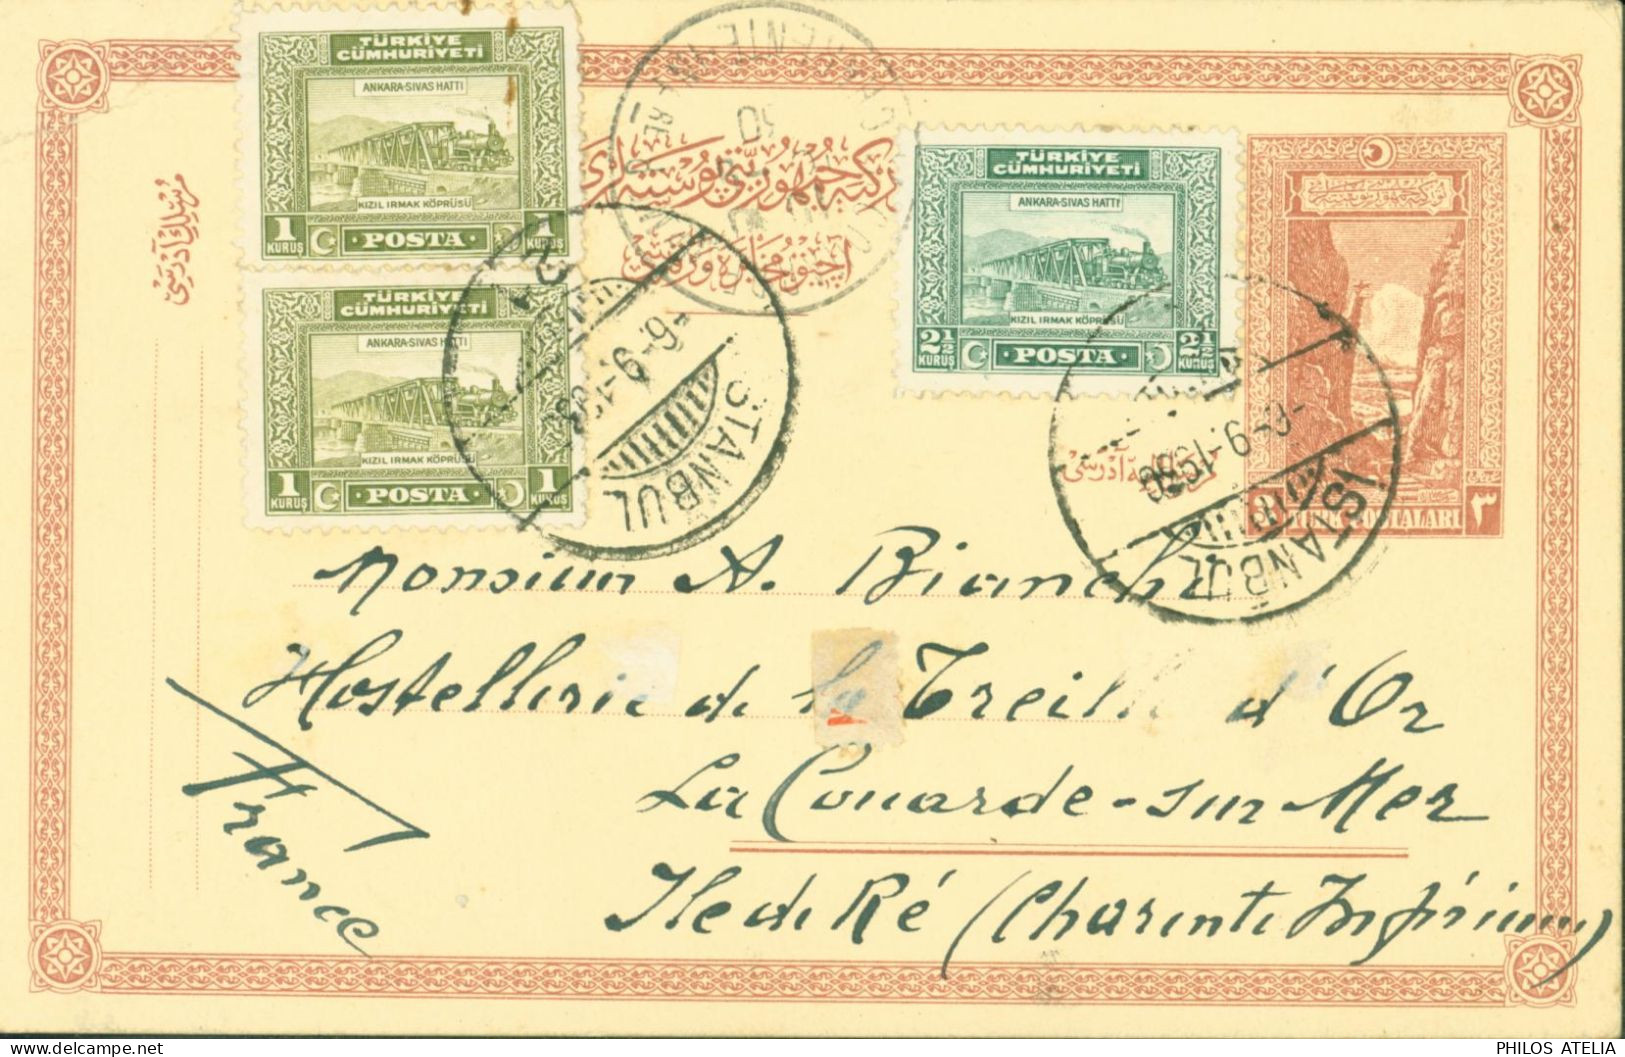 TÜRKİYE
CÜMHURİYETİ
ANKARA-SIVAS HATTI
KIZIL IRMAK KÖPRÜSÜ
1 KURUŞ POSTA 1 KURUŞ
TÜRKİYE
CÜMHURİYETİ
ANKARA-SIVAS HATTI
KIZIL IRMAK KÖPRÜSÜ
1 KURUŞ POSTA 1 KURUŞ
TÜRKİYE
CÜMHURİYETİ
ANKARA-SIVAS HATTI
KIZIL IRMAK KÖPRÜSÜ
2½ KURUŞ POSTA 2½ KURUŞ
مرسلك آدرسى
٣
ISTANBUL
-6-9-19
ISTANBUL
-6-9-1930
Monsieur A. Bianchi
Hostellerie de la Treille d'Or
La Couarde-sur Mer
Ile de Ré (Charente Inférieure)
France
PHILOS ATELIA